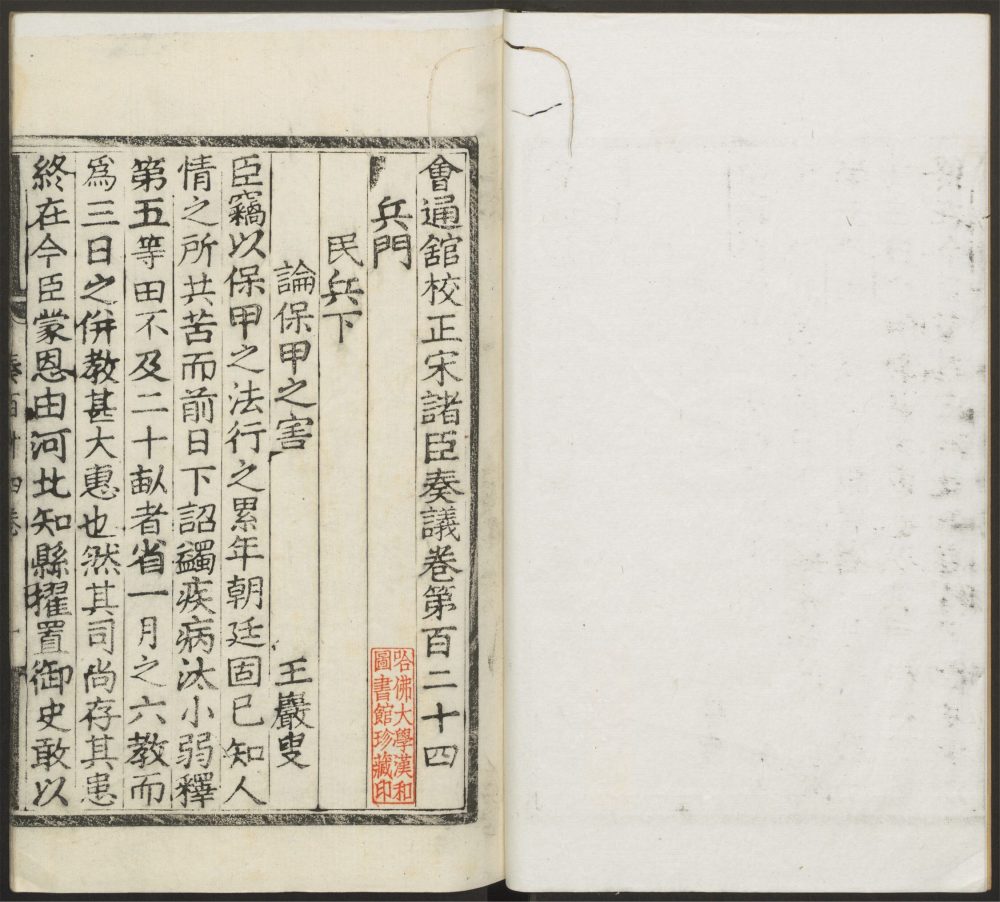 會通舘校正宋諸臣奏議卷第百二十四
兵門
民兵下
論保甲之害
王巖叟
臣竊以保甲之法行之累年朝廷固已知人
情之所共苦而前日下詔蠲疾病汰小弱釋
第五等田不及二十畝者省一月之六教而
爲三日之併教甚大惠也然其司尚存其患
終在今臣蒙恩由河北知縣擢置御史敢以
哈佛大學漢和
圖書館珍藏印